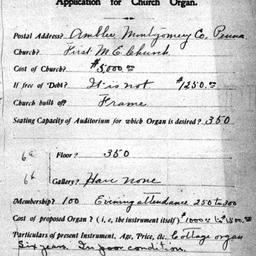 Application for Church Organ.
Postal Address? Ambler Montgomery Co. Penna
Church? First M. E. Church
Cost of Church? $5,000.00
If free of Debt? It is not $1250.00
Church built of? Frame
Seating Capacity of Auditorium for which Organ is desired? 350
Floor? 350
Gallery? Have none
Membership? 100 Evening attendance 250 to 300
Cost of proposed Organ? (i.e., the instrument itself) $1000 to $1500.00
Particulars of present Instrument, Age, Price, &c. Cottage organ
Six years. In poor condition.